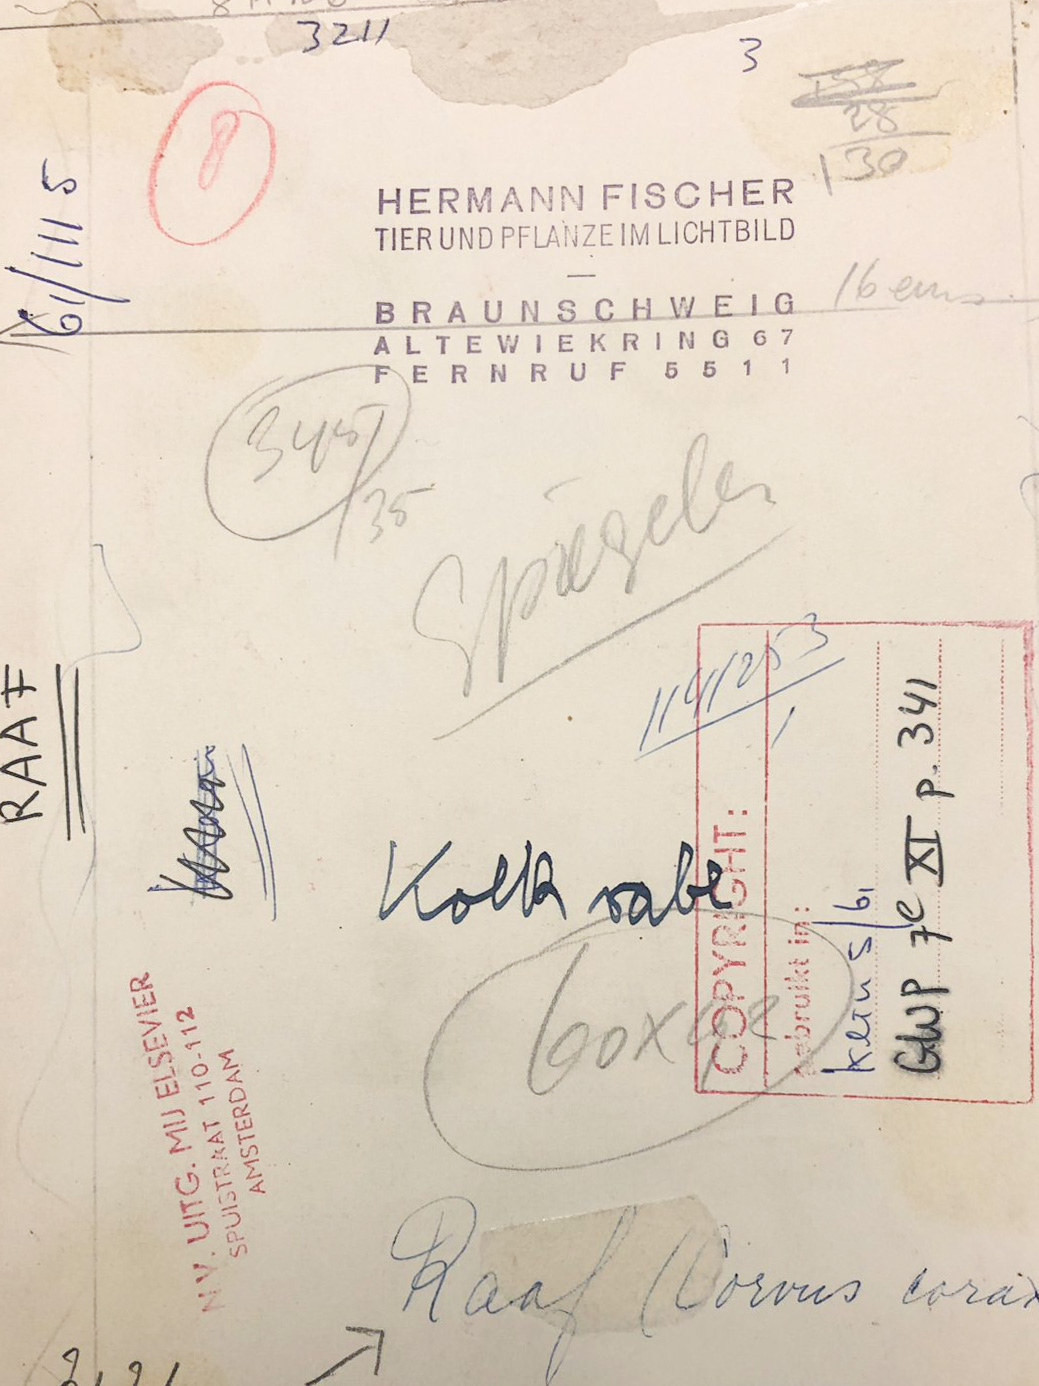 3211
3
8
28
130
HERMANN FISCHER
TIER UND PFLANZE IM LICHTBILD
BRAUNSCHWEIG
ALTEWIEKRING 67
FERNRUF 5511
345
35
Spiegelen
RAAF
COPYRIGHT:
gebruikt in:
klein 5/61
GWP 7e XI p. 341
Kolkrabe
60x42
N.V. UITG. MIJ ELSEVIER
SPUISTRAAT 110-112
AMSTERDAM
Raaf (Corvus corax